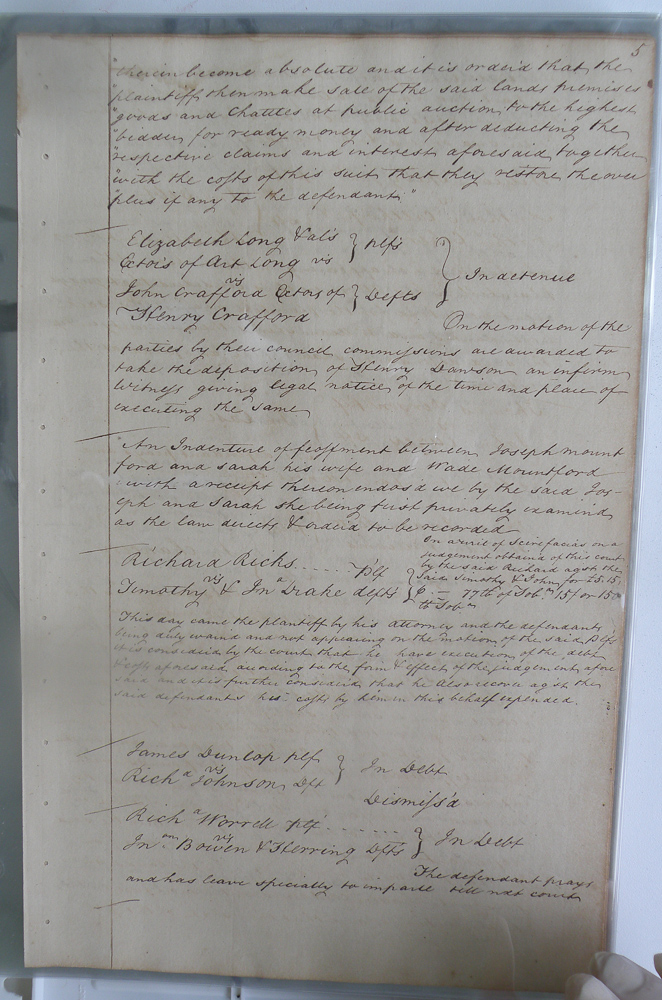 5
"therein become absolute and it is orderd that the
"plaintiff then make sale of the said lands premises
"goods and Chattles at public auction to the highest
"bidder for ready money and after deducting the
"respective claims and interest aforesaid together
"with the costs of this suit that they restore the over
"plus if any to the defendant"
Elizabeth Long & als } plfs
Exctois of Art Long vs
vs } In detenue
John Crafford Exctois of } Defts
Henry Crafford
On the motion of the
parties by their council commissions are awarded to
take the deposition of Henry Dawson an infirm
Witness giving legal notice of the time and place of
executing the same
An Indenture of feoffment between Joseph Mount
ford and Sarah his wife and Wade Mountford
with a receipt thereon endos'd by the said Jos-
eph and Sarah she being first privately examind
as the law directs & orderd to be recorded
On a writ of Scire facias on a
judgement obtaind of this court
by the said Richard agst the
Said Timothy & John for £5.15.
Richard Ricks ...... Plf
vs
Timothy & Jn Drake defts
This day came the plaintiff by his attorney and the defendants
being duly warnd and not appearing on the motion of the said Plf
it is considerd by the court that he have execution of the debt
& costs aforesaid according to the form & effect of the judgement afore
said and it is further considerd that he also recover agst the
said defendants his costs by him in this behalf expended.
James Dunlop plf } In Debt
vs
Richd Johnson Dft
Dismiss'd
Richd Worrell plf ...... } In Debt
vs
Jn. Bowen & Herring Dfts
The defendant prays
and has leave specially to imparle till next court